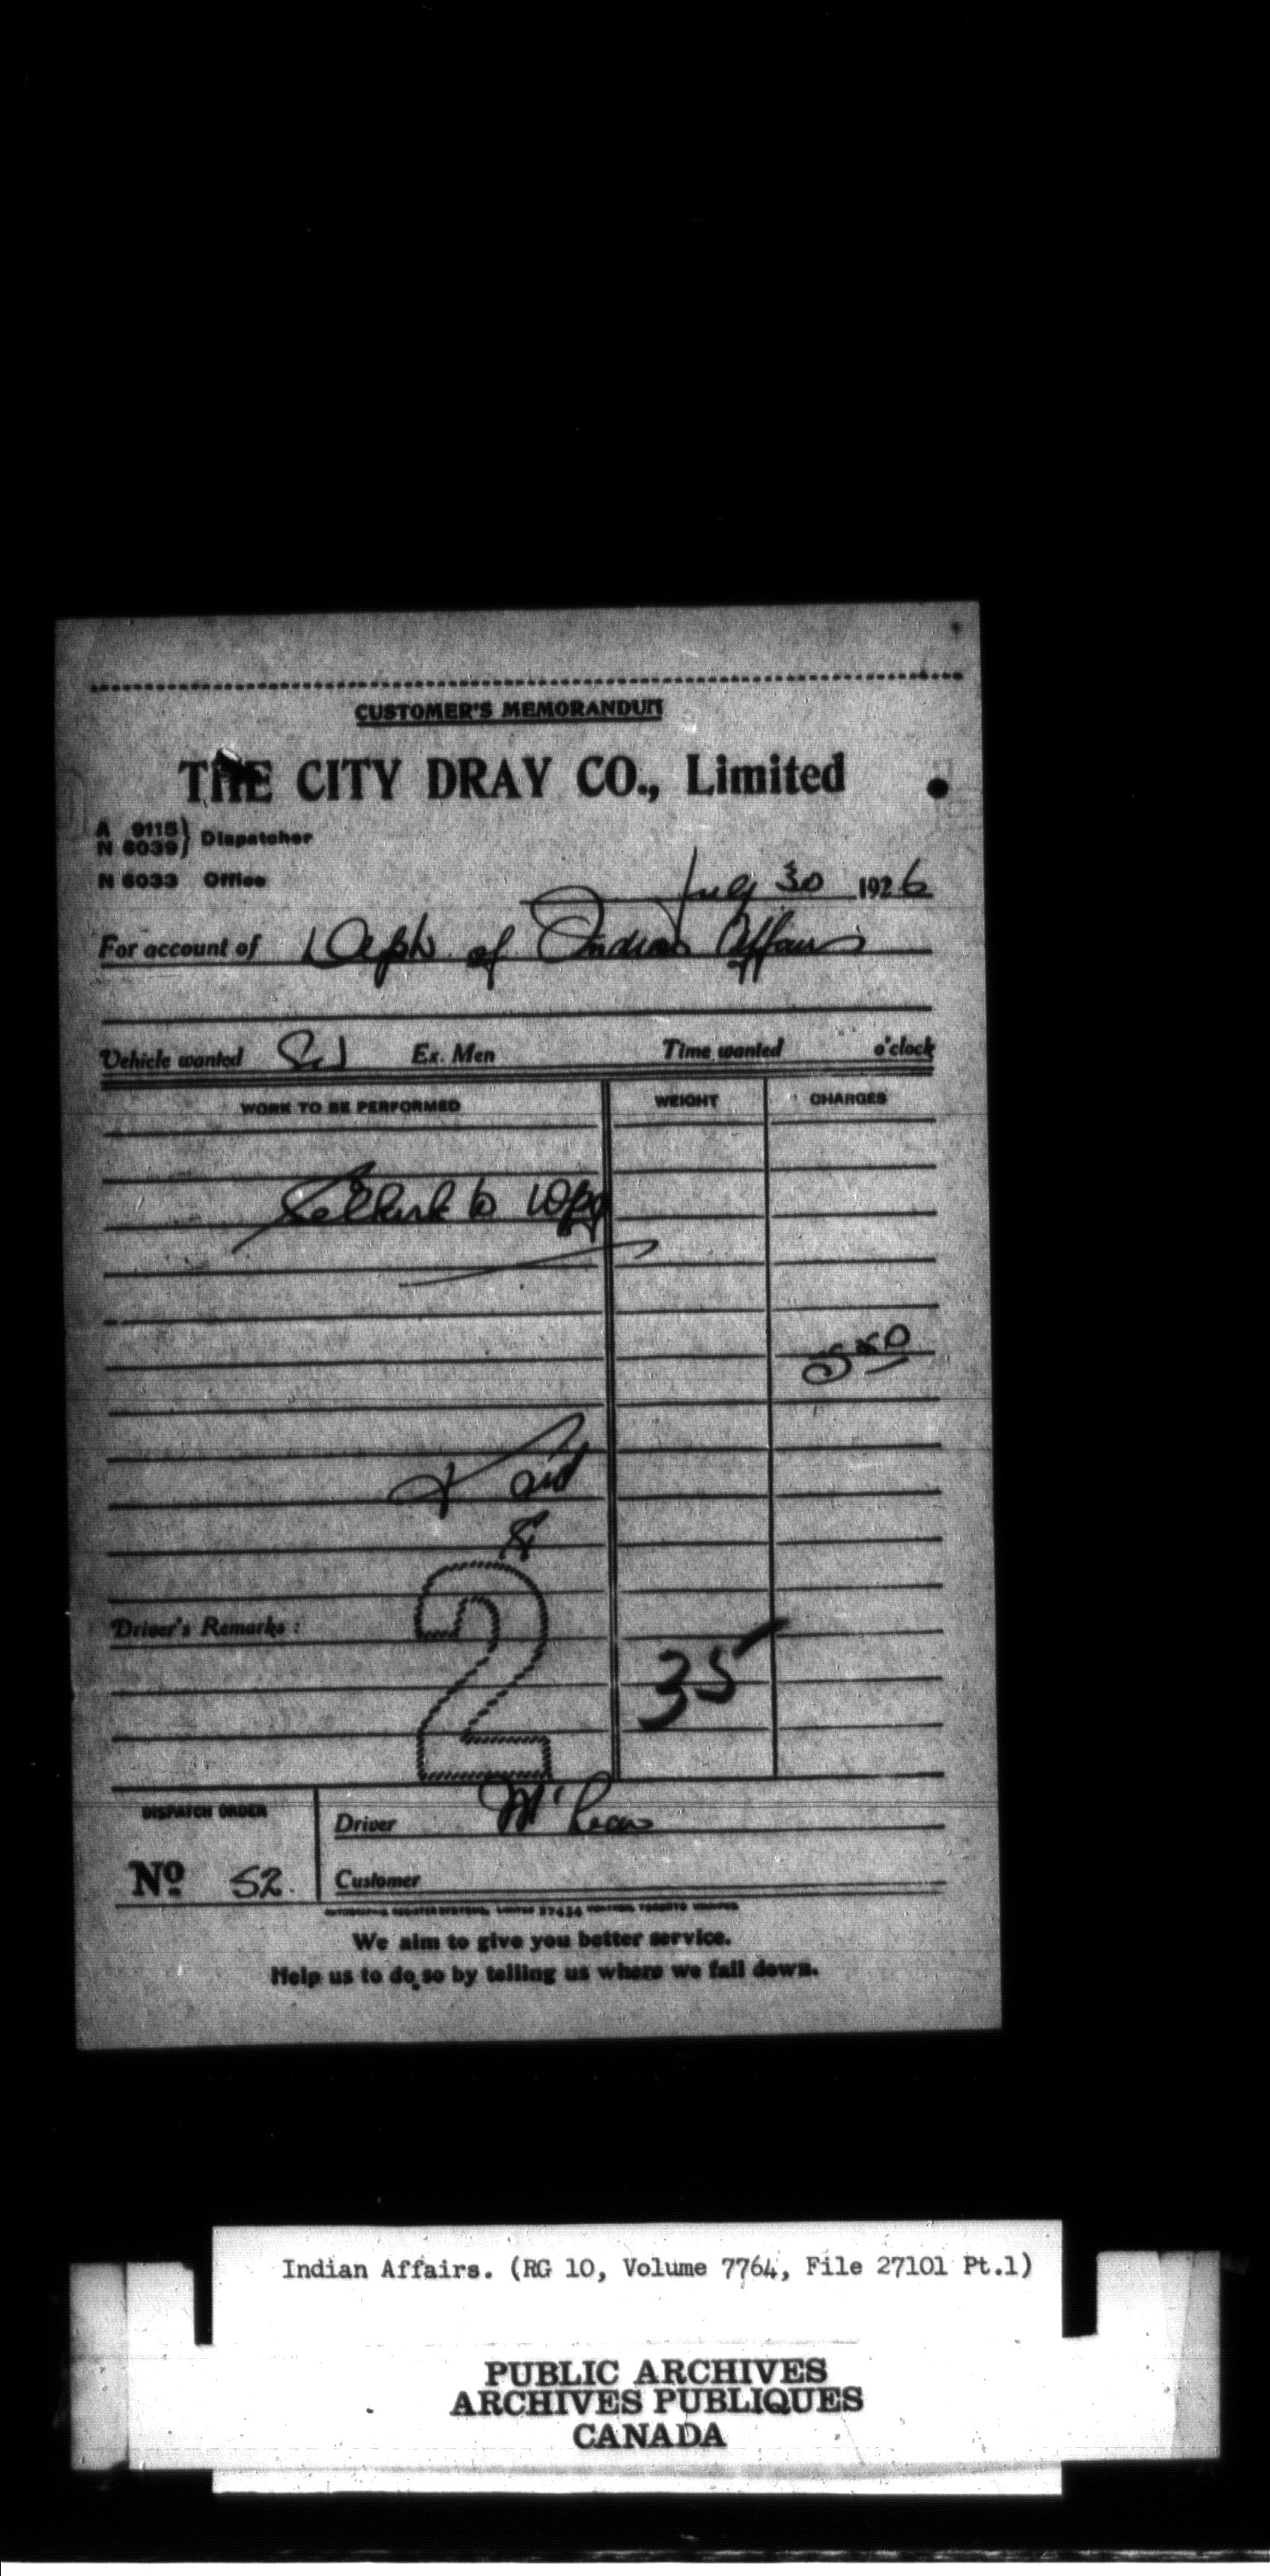 CUSTOMER'S MEMORANDUM
THE CITY DRAY CO., Limited
A 9115
N 6039 } Dispatcher
N 6033 Office
July 30 1926
For account of Dept. of Indian Affairs
Vehicle wanted Ex. Men Time wanted o'clock
WORK TO BE PERFORMED WEIGHT CHARGES
Selkirk to Wpg
Paid
2
Driver's Remarks :
35
DISPATCH ORDER
Driver McLean
No. 52.
Customer
We aim to give you better service.
Help us to do so by telling us where we fall down.
Indian Affairs. (RG 10, Volume 7764, File 27101 Pt.1)
PUBLIC ARCHIVES
ARCHIVES PUBLIQUES
CANADA